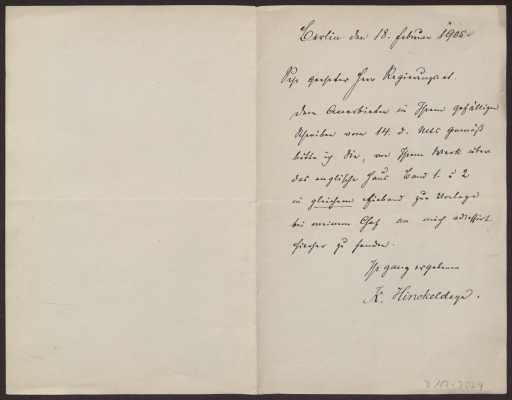 Berlin den 18. Februar 1905.
Sehr geehrter Herr Regierungsrat.
Dem Anerbieten in Ihrem gefälligen
Schreiben vom 14. d. Mts gemäß
bitte ich Sie, von Ihrem Werk über
das englische Haus Band 1. u 2
in gleichem Einband zur Vorlage
bei meinem Chef an mich adressirt
hierher zu senden.
Ihr ganz ergebener
K. Hinckeldeyn.